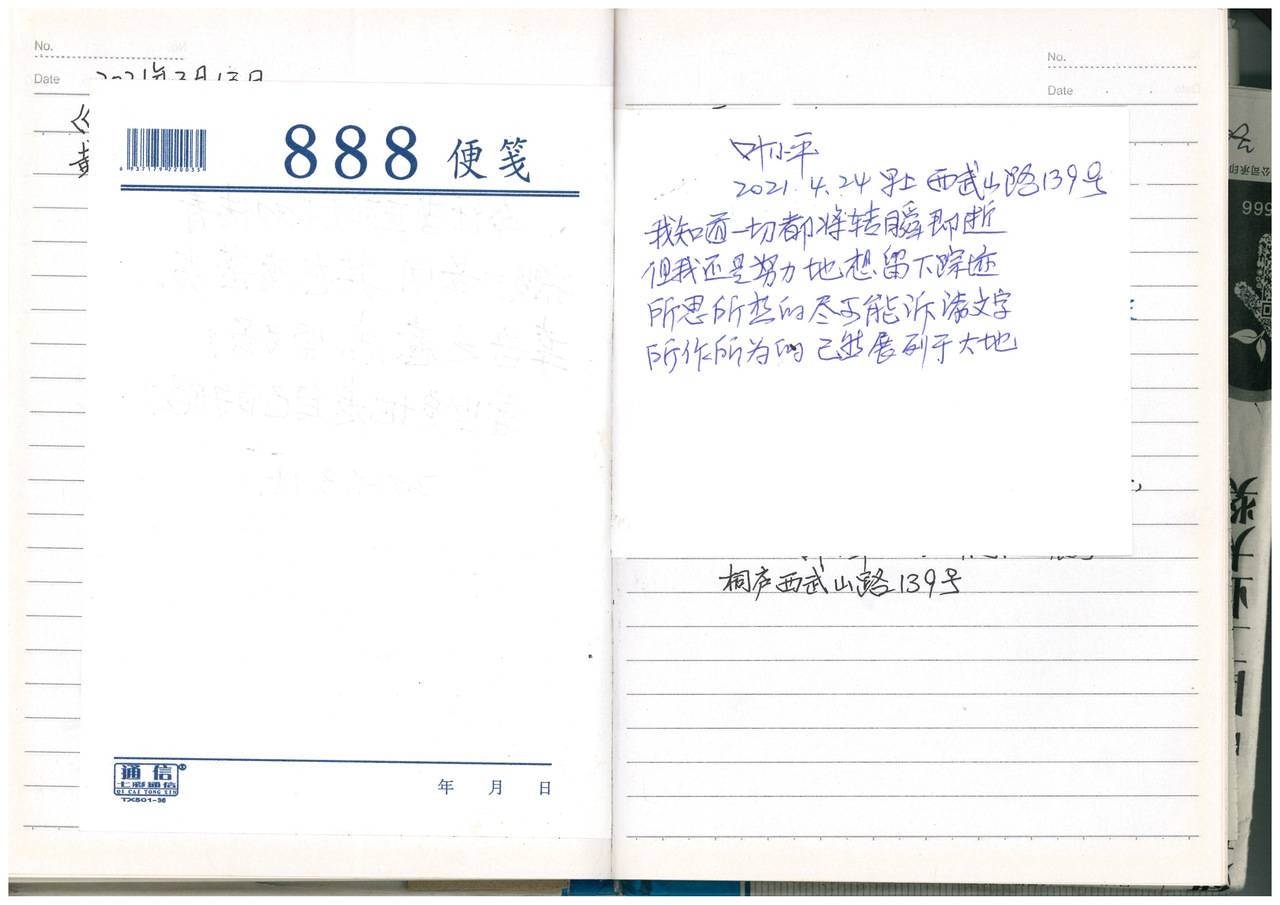 No.
Date 2021年3月13日
《
888 便笺
6 937179 220035
通信
七彩通信
QI CAI TONG XIN
TX501-36
年 月 日
No.
Date
叶小平
2021.4.24 早上 西武山路139号
我知道一切都将转瞬即逝
但我还是努力地想留下踪迹
所思所想的尽可能诉诸文字
所作所为的已然展列于大地
桐庐西武山路139号
公司承印
566
奖
大